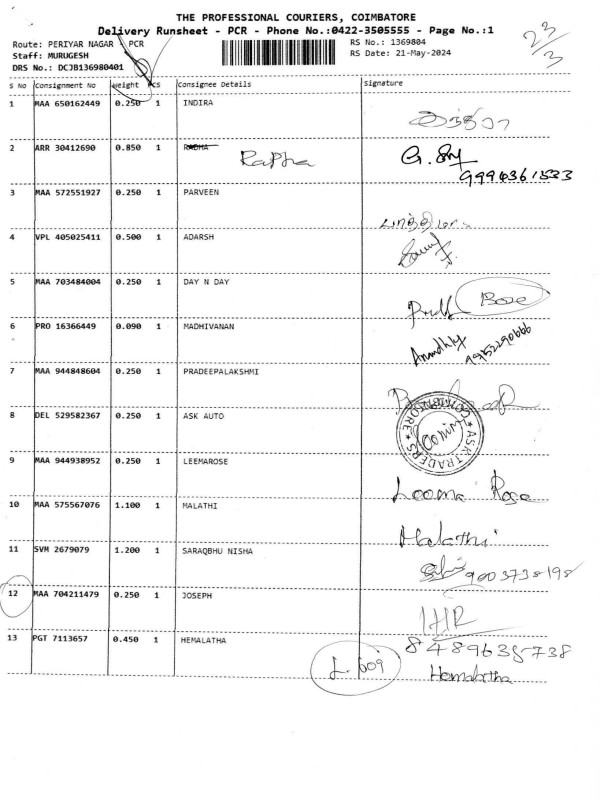 THE PROFESSIONAL COURIERS, COIMBATORE
Delivery Runsheet - PCR - Phone No.:0422-3505555 - Page No.:1
Route: PERIYAR NAGAR - PCR
RS No.: 1369804
23/3
Staff: MURUGESH
RS Date: 21-May-2024
DRS No.: DCJB136980401
S No Consignment No Weight PCS Consignee Details Signature
1 MAA 650162449 0.250 1 INDIRA
2 ARR 30412690 0.850 1 RADHA
Rapha
9994361533
3 MAA 572551927 0.250 1 PARVEEN
4 VPL 405025411 0.500 1 ADARSH
5 MAA 703484004 0.250 1 DAY N DAY
Bose
6 PRO 16366449 0.090 1 MADHIVANAN
9952290666
7 MAA 944848604 0.250 1 PRADEEPALAKSHMI
8 DEL 529582367 0.250 1 ASK AUTO
ASK TRADERS COIMBATORE
9 MAA 944938952 0.250 1 LEEMAROSE
Leema Rose
10 MAA 575567076 1.100 1 MALATHI
Malathi
11 SVM 2679079 1.200 1 SARAQBHU NISHA
9003738198
12 MAA 704211479 0.250 1 JOSEPH
13 PGT 7113657 0.450 1 HEMALATHA
8489635738
Hemalatha